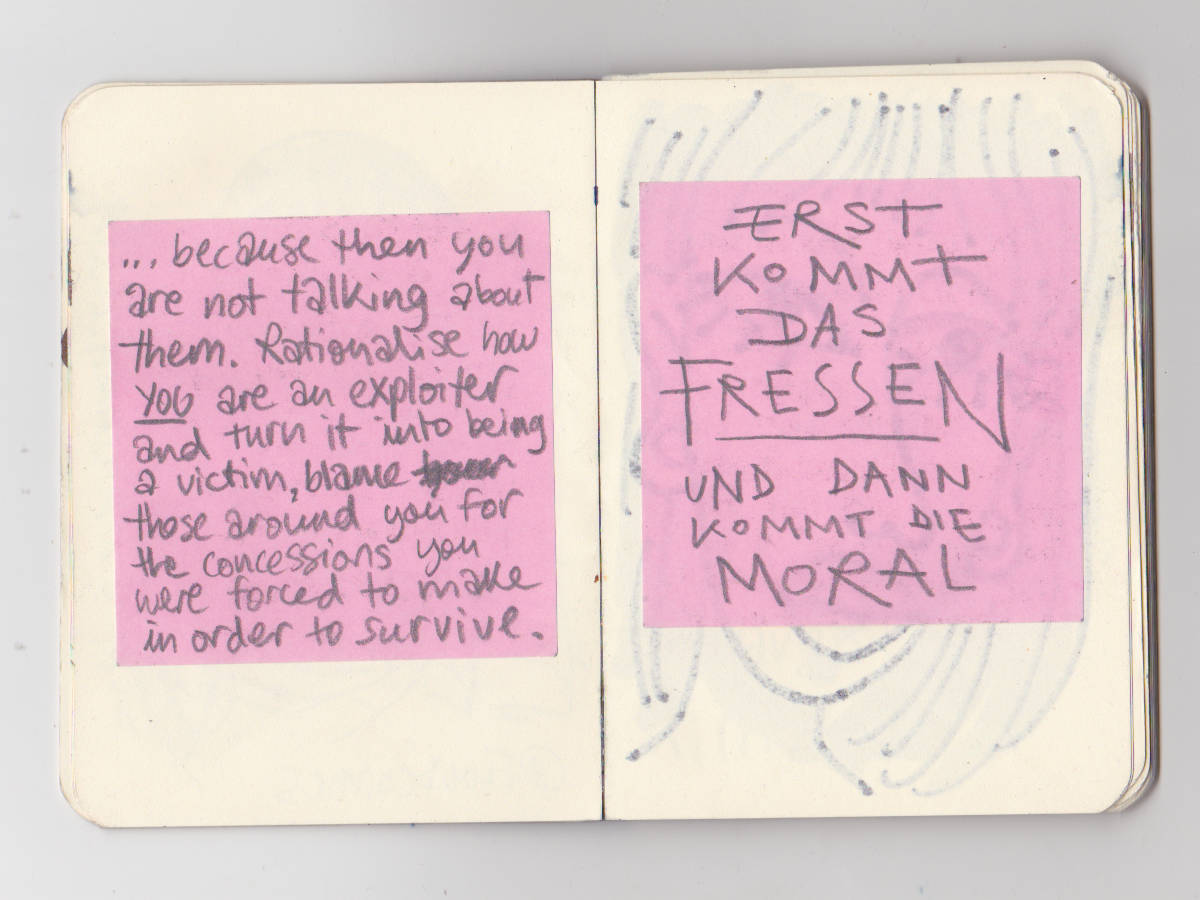 ... because then you
are not talking about
them. Rationalise how
YOU are an exploiter
and turn it into being
a victim, blame
those around you for
the concessions you
were forced to make
in order to survive.
ERST
KOMMT
DAS
FRESSEN
UND DANN
KOMMT DIE
MORAL